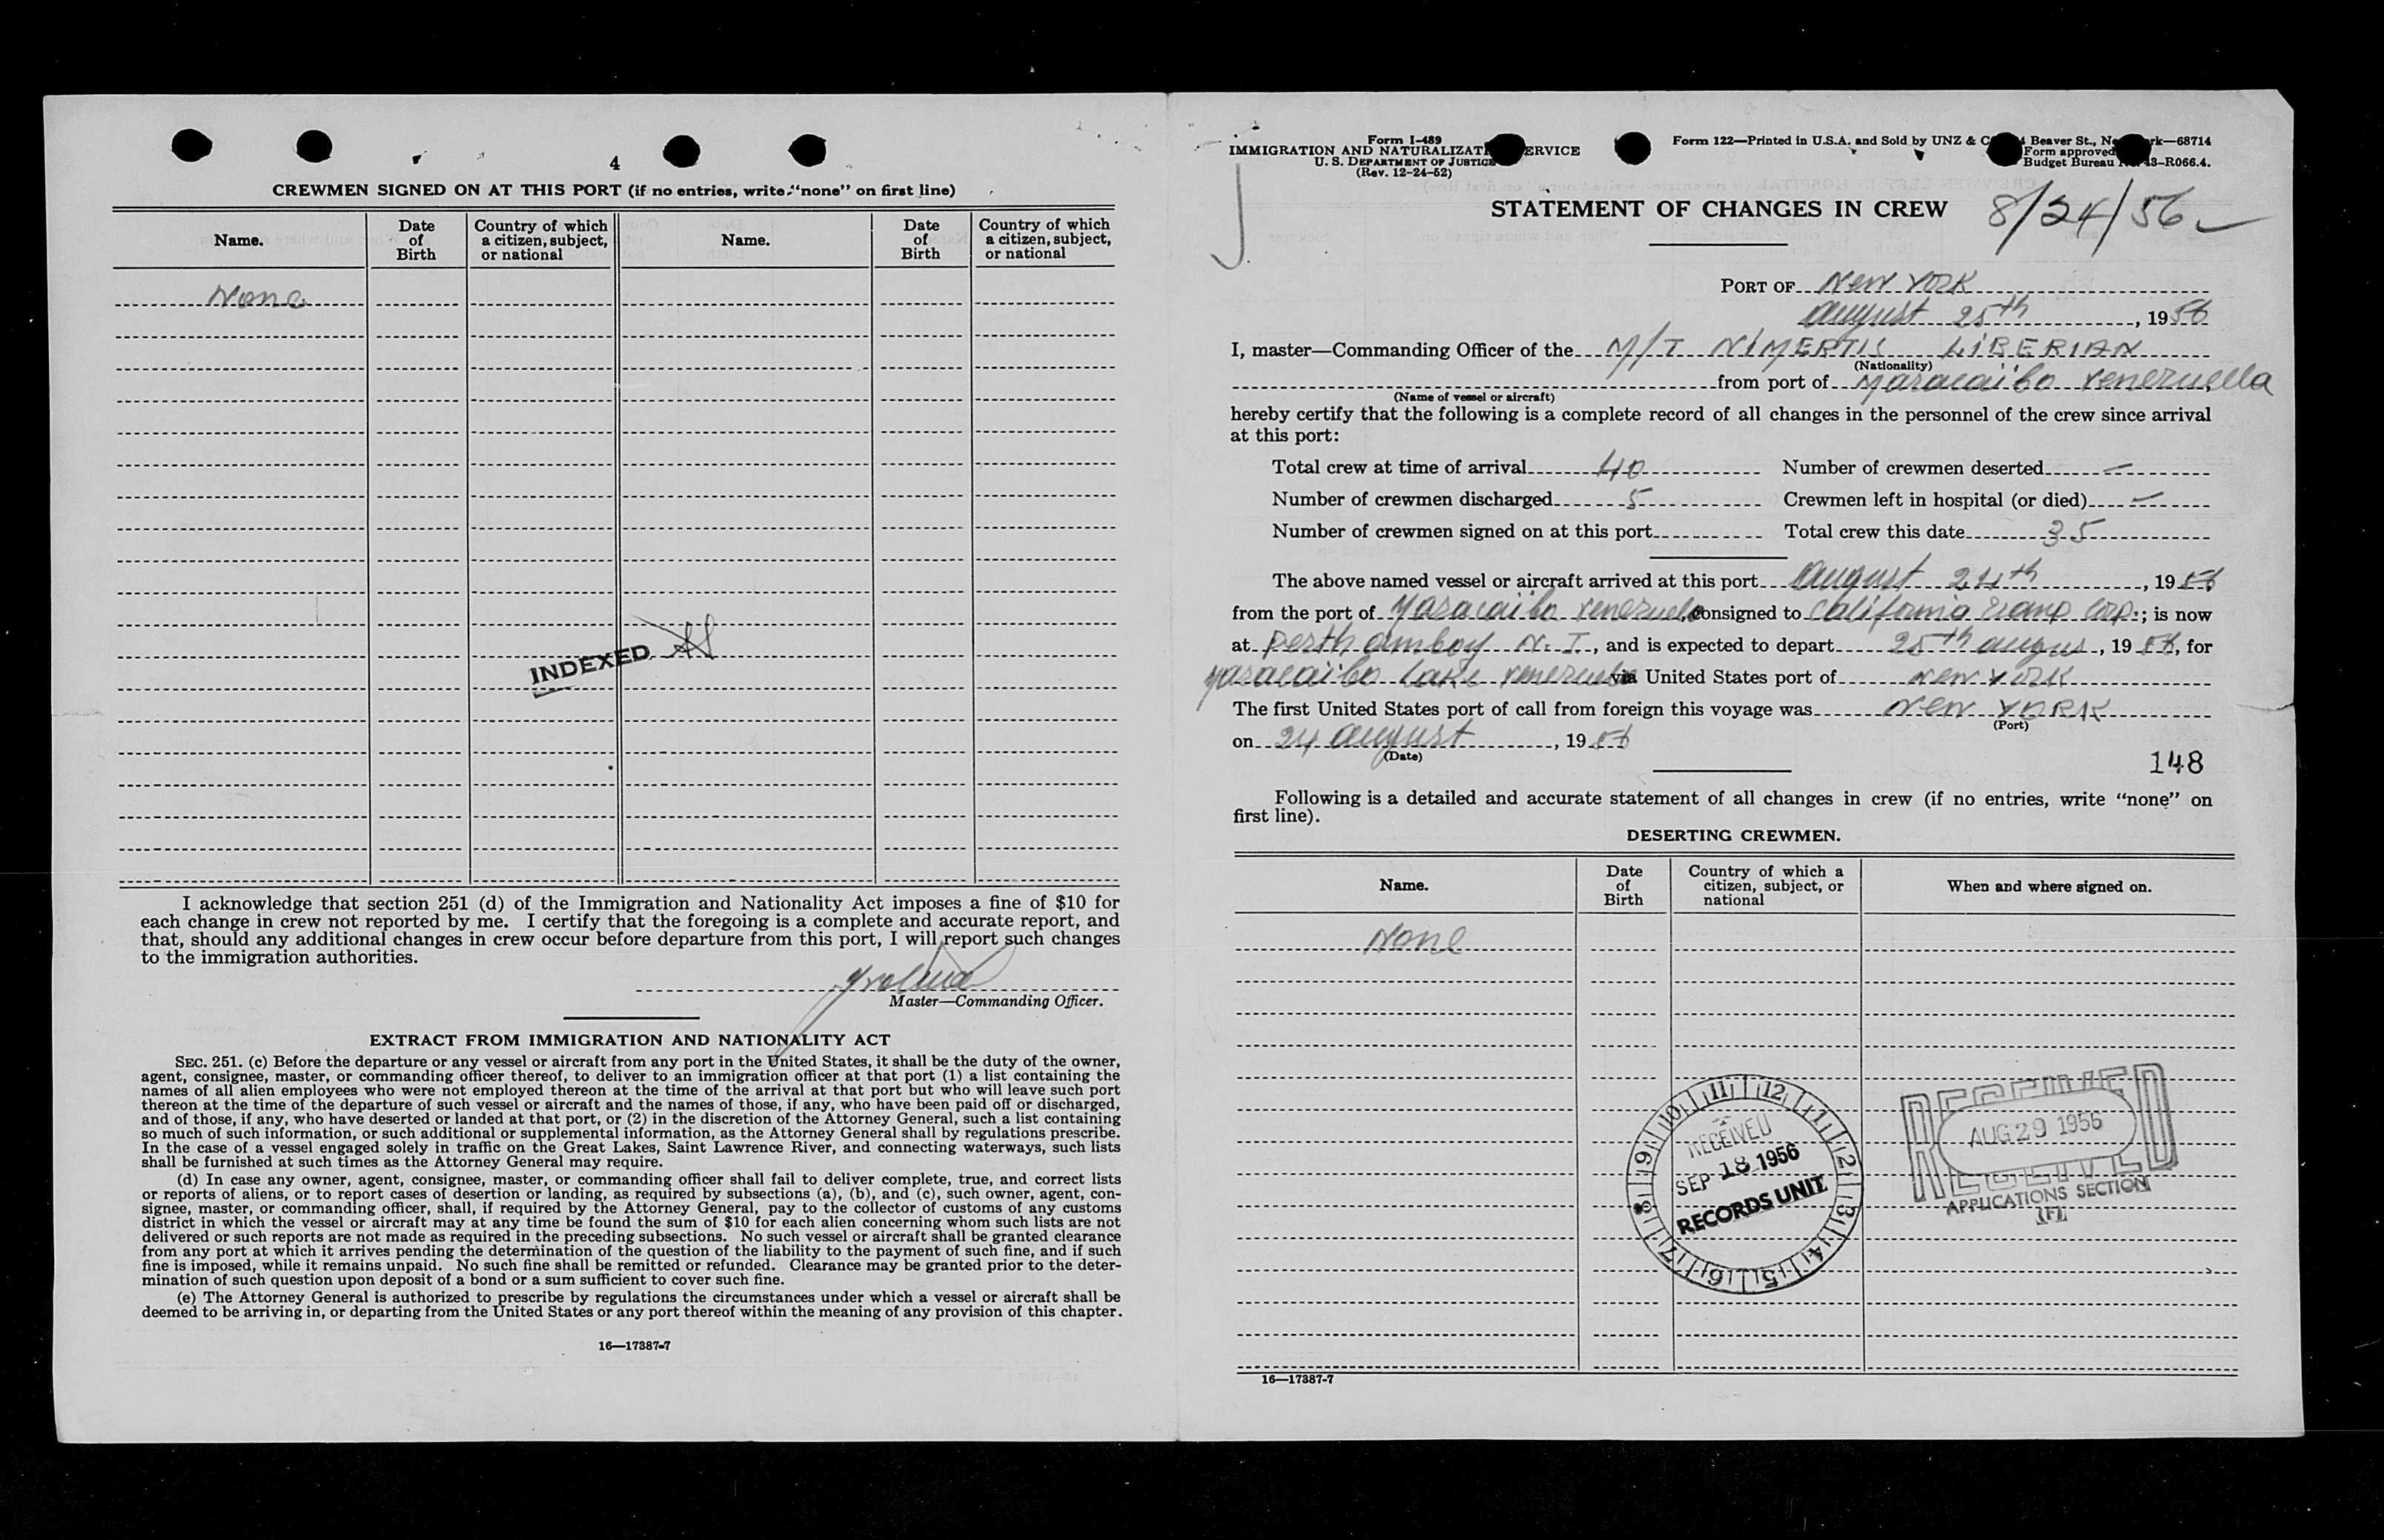 4
CREWMEN SIGNED ON AT THIS PORT (if no entries, write "none" on first line)
Name. Date of Birth Country of which a citizen, subject, or national Name. Date of Birth Country of which a citizen, subject, or national
None
INDEXED
I acknowledge that section 251 (d) of the Immigration and Nationality Act imposes a fine of $10 for
each change in crew not reported by me. I certify that the foregoing is a complete and accurate report, and
that, should any additional changes in crew occur before departure from this port, I will report such changes
to the immigration authorities.
Master—Commanding Officer.
EXTRACT FROM IMMIGRATION AND NATIONALITY ACT
SEC. 251. (c) Before the departure or any vessel or aircraft from any port in the United States, it shall be the duty of the owner,
agent, consignee, master, or commanding officer thereof, to deliver to an immigration officer at that port (1) a list containing the
names of all alien employees who were not employed thereon at the time of the arrival at that port but who will leave such port
thereon at the time of the departure of such vessel or aircraft and the names of those, if any, who have been paid off or discharged,
and of those, if any, who have deserted or landed at that port, or (2) in the discretion of the Attorney General, such a list containing
so much of such information, or such additional or supplemental information, as the Attorney General shall by regulations prescribe.
In the case of a vessel engaged solely in traffic on the Great Lakes, Saint Lawrence River, and connecting waterways, such lists
shall be furnished at such times as the Attorney General may require.
(d) In case any owner, agent, consignee, master, or commanding officer shall fail to deliver complete, true, and correct lists
or reports of aliens, or to report cases of desertion or landing, as required by subsections (a), (b), and (c), such owner, agent, con-
signee, master, or commanding officer, shall, if required by the Attorney General, pay to the collector of customs of any customs
district in which the vessel or aircraft may at any time be found the sum of $10 for each alien concerning whom such lists are not
delivered or such reports are not made as required in the preceding subsections. No such vessel or aircraft shall be granted clearance
from any port at which it arrives pending the determination of the question of the liability to the payment of such fine, and if such
fine is imposed, while it remains unpaid. No such fine shall be remitted or refunded. Clearance may be granted prior to the deter-
mination of such question upon deposit of a bond or a sum sufficient to cover such fine.
(e) The Attorney General is authorized to prescribe by regulations the circumstances under which a vessel or aircraft shall be
deemed to be arriving in, or departing from the United States or any port thereof within the meaning of any provision of this chapter.
16—17387-7
Form I-489
IMMIGRATION AND NATURALIZAT ERVICE
U. S. DEPARTMENT OF JUSTICE
(Rev. 12-24-52)
Form 122—Printed in U.S.A. and Sold by UNZ & C Beaver St., Ne rk—68714
Form approved
Budget Bureau 43-R066.4.
STATEMENT OF CHANGES IN CREW 8/24/56
PORT OF New YORK
August 25th, 1956
I, master—Commanding Officer of the M/T NIMERTIS LIBERIAN
(Nationality)
from port of Maracaibo Venezuella,
(Name of vessel or aircraft)
hereby certify that the following is a complete record of all changes in the personnel of the crew since arrival
at this port:
Total crew at time of arrival 40 Number of crewmen deserted —
Number of crewmen discharged 5 Crewmen left in hospital (or died) —
Number of crewmen signed on at this port Total crew this date 35
The above named vessel or aircraft arrived at this port August 24th, 1956
from the port of Maracaibo Venezuela, consigned to California Corp.; is now
at Perth Amboy N.J., and is expected to depart 25th augus, 1956, for
Maracaibo Lake Venezuela via United States port of New York
The first United States port of call from foreign this voyage was New YORK
(Port)
on 24 August, 1956
(Date)
148
Following is a detailed and accurate statement of all changes in crew (if no entries, write "none" on
first line).
DESERTING CREWMEN.
Name. Date of Birth Country of which a citizen, subject, or national When and where signed on.
None
11 12 1 2 3 4 5 6 7 8 9 10
RECEIVED
SEP 18 1956
RECORDS UNIT
RECEIVED
AUG 29 1956
RECEIVED
APPLICATIONS SECTION
(F)
16—17387-7